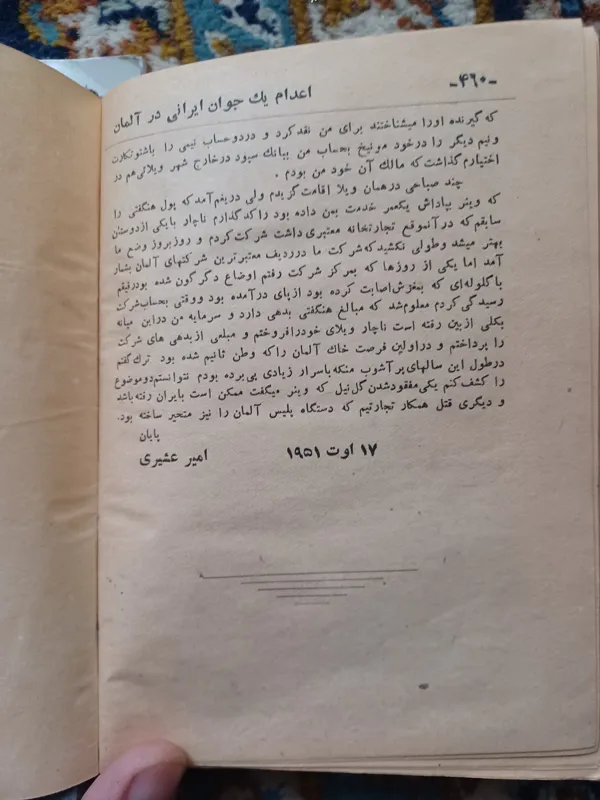 -۴۶۰-
اعدام یك جوان ایرانی در آلمان
که گیرنده اورا میشناختند برای من نقد کرد و دردوحساب نیمی را باشتوتکارت
ونیم دیگر را درخود مونیخ بحساب من ببانك سپود درخارج شهر ویلائی هم در
اختیارم گذاشت که مالك آن خود من بودم .
چند صباحی درهمان ویلا اقامت گزیدم ولی دریغم آمد که پول هنگفتی را
که وینر بپاداش یکعمر خدمت بمن داده بود راکد گذارم ناچار بایکی ازدوستان
سابقم که درآنموقع تجارتخانه معتبری داشت شرکت کردم و روزبروز وضع ما
بهتر میشد وطولی نکشید که شرکت ما درردیف معتبرترین شرکتهای آلمان بشمار
آمد اما یکی از روزها که بمرکز شرکت رفتم اوضاع دگرگون شده بود رفیقم
باگلوله‌ای که بمغزش اصابت کرده بود ازپای درآمده بود ووقتی بحساب شرکت
رسیدگی کردم معلوم شد که مبالغ هنگفتی بدهی دارد و سرمایه من دراین میانه
بکلی ازبین رفته است ناچار ویلای خودرا فروختم و مبلغی ازبدهی های شرکت
را پرداختم و دراولین فرصت خاك آلمان راکه وطن ثانیم شده بود ترك گفتم
درطول این سالهای پرآشوب منکه باسرار زیادی پی برده بودم نتوانستم دوموضوع
را کشف کنم یکی مفقود شدن گل نیل که وینر میگفت ممکن است بایران رفته باشد
و دیگری قتل همکار تجارتیم که دستگاه پلیس آلمان را نیز متحیر ساخته بود.
پایان
۱۷ اوت ۱۹۵۱
امیر عشیری